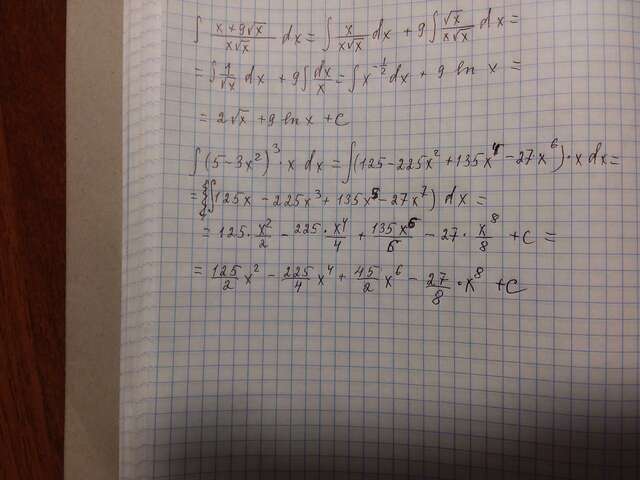 ∫ (x+9√x)/(x√x) dx = ∫ x/(x√x) dx + 9 ∫ √x/(x√x) dx =
= ∫ 1/√x dx + 9 ∫ dx/x = ∫ x^(-1/2) dx + 9 ln x =
= 2√x + 9 ln x + C
∫ (5-3x²)³ · x dx = ∫ (125 - 225x² + 135x⁴ - 27x⁶) · x dx =
= ∫ (125x - 225x³ + 135x⁵ - 27x⁷) dx =
= 125 · x²/2 - 225 · x⁴/4 + 135x⁶/6 - 27 · x⁸/8 + C =
= 125/2 x² - 225/4 x⁴ + 45/2 x⁶ - 27/8 · x⁸ + C